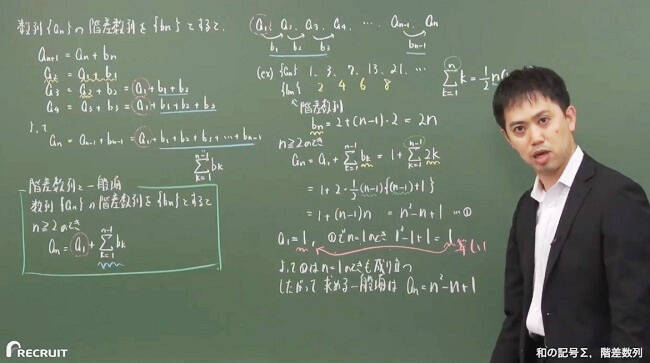 数列{an}の階差数列を{bn}とすると、
an+1 = an + bn
a2 = a1 + b1
a3 = a2 + b2 = a1 + b1 + b2
a4 = a3 + b3 = a1 + b1 + b2 + b3
よって
an = an-1 + bn-1 = a1 + b1 + b2 + b3 + … + bn-1
n-1
Σ bk
k=1
階差数列と一般項
数列{an}の階差数列を{bn}とすると
n≧2のとき
an = a1 + Σ bk
n-1
k=1
a1, a2, a3, a4, … an-1, an
b1 b2 b3 bn-1
(ex) {an} 1, 3, 7, 13, 21, …
{bn} 2 4 6 8
階差数列
bn = 2+(n-1)・2 = 2n
n≧2のとき
an = a1 + Σ bk = 1 + Σ 2k
= 1 + 2・1/2(n-1){(n-1)+1}
= 1 + (n-1)n = n²-n+1 …①
a1 = 1, ①でn=1のとき 1²-1+1 = 1
等しい
よって①はn=1のときも成り立つ
したがって求める一般項は an = n²-n+1
n
Σ k = 1/2 n
k=1
RECRUIT
和の記号Σ，階差数列